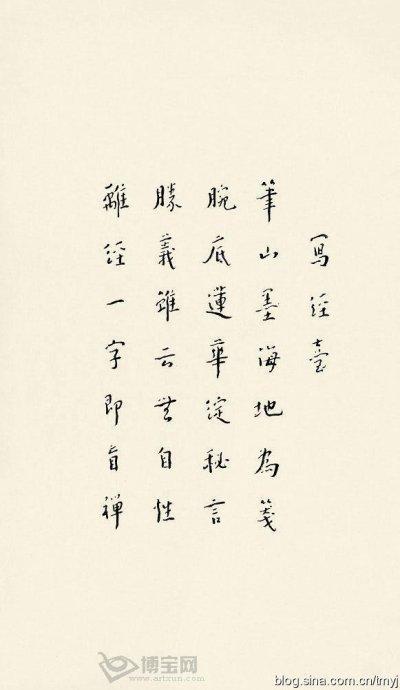 寫經臺
筆山墨海地為箋
腕底蓮華綻秘言
勝義雖云無自性
離經一字即盲禪
博宝网
www.artxun.com
blog.sina.com.cn/tmyj